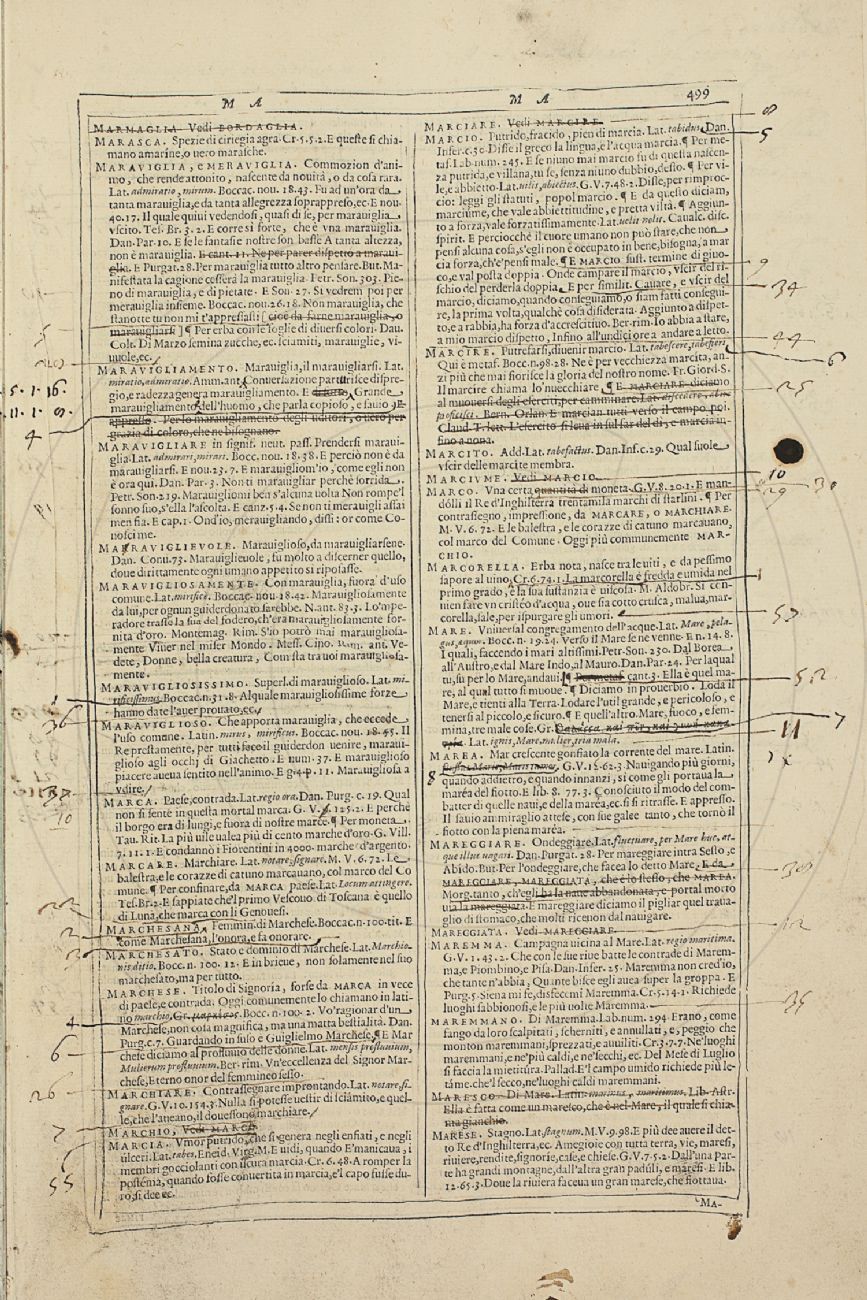 M A
M A
499
MARMAGLIA Vedi BORDAGLIA.
MARASCA. Spezie di ciriegia agra. Cr. 5. 5. 2. E queste si chia-
mano amarine, o uero marasche.
MARAVIGLIA, e MERAVIGLIA. Commozion d'ani-
mo, che rende attonito, nascente da nouità, o da cosa rara.
Lat. admiratio, mirum. Boccac. nou. 18. 43. Fu ad un'ora da
tanta marauiglia, e da tanta allegrezza soprappreso, ec. E nou.
40. 17. Il quale quiui vedendosi, quasi di se, per marauiglia
vscito. Tes. Br. 3. 2. E corre sì forte, che è vna marauiglia.
Dan. Par. 10. E se le fantasie nostre son basse A tanta altezza,
non è marauiglia. E cant. 11. Ne per parer dispetto a maraui-
glia. E Purgat. 28. Per marauiglia tutto altro pensare. But. Ma-
nifestata la cagione cesserà la marauiglia. Petr. Son. 303. Pie-
no di marauiglia, e di pietate. E Son. 27. Sì vedrem poi per
merauiglia insieme. Boccac. nou. 26. 18. Non marauiglia, che
stanotte tu non mi t'appressasti [cioè da farne marauiglia, o
marauigliarsi] ¶ Per erba con le foglie di diuersi colori. Dau.
Colt. Di Marzo semina zucche, ec. sciamiti, marauiglie, vi-
uuole, ec.
MARAVIGLIAMENTO. Marauiglia, il marauigliarsi. Lat.
miratio, admiratio. Amm. ant. Conuersazione partorisce dispre-
gio, e radezza genera marauigliamento. E Grande
marauigliamento dell'huomo, che parla copioso, e sauio
appresso. Per lo marauigliamento degli uditori, o uero per
grazia di coloro, che ne bisognano.
MARAVIGLIARE in signif. neut. pass. Prendersi maraui-
glia. Lat. admirari, mirari. Bocc. nou. 18. 38. E perciò non è da
marauigliarsi. E nou. 23. 7. E marauigliom'io, come egli non
è ora qui. Dan. Par. 3. Non ti marauigliar perchè sorrida.
Petr. Son. 219. Marauigliomi ben s'alcuna uolta Non rompe'l
sonno suo, s'ella l'ascolta. E canz. 5. 4. Se non ti merauigli assai
men fia. E cap. 1. Ond'io, merauigliando, dissi: or come Co-
nosci me.
MARAVIGLIEVOLE. Marauiglioso, da marauigliarsene.
Dan. Conu. 73. Marauiglieuole, fu molto a discerner quello,
doue dirittamente ogni umano appetito si riposasse.
MARAVIGLIOSAMENTE. Con marauiglia, fuora d'uso
comune. Lat. mirificè. Boccac. nou. 18. 42. Marauigliosamente
da lui, per ognun guiderdonato sarebbe. N. ant. 83. 3. Lo'mpe-
radore trasse la sua del fodero, ch'era marauigliosamente for-
nita d'oro. Montemag. Rim. S'io potrò mai marauigliosa-
mente Viuer nel miser Mondo. Mess. Cino. Rim. ant. Ve-
dete, Donne, bella creatura, Com sta tra uoi marauigliosa-
mente.
MARAVIGLIOSISSIMO. Superl. di marauiglioso. Lat. mi-
rificissimus. Boccac. n. 31. 8. Al quale marauigliosissime forze
hanno date l'auer prouato, ec.
MARAVIGLIOSO. Che apporta marauiglia, che eccede
l'uso comune. Latin. mirus, mirificus. Boccac. nou. 18. 45. Il
Re prestamente, per tutti fece il guiderdon uenire, maraui-
glioso agli occhj di Giachetto. E num. 37. E marauiglioso
piacere aueua sentito nell'animo. E g. 4. p. 11. Marauigliosa a
vdire.
MARCA. Paese, contrada. Lat. regio ora. Dan. Purg. c. 19. Qual
non si sente in questa mortal marca. G. V. 125. 2. E perchè
il borgo era di lungi, e fuora di nostre marce. ¶ Per moneta.
Tau. Rit. La più uile ualea più di cento marche d'oro. G. Vill.
7. 11. 1. E condannò i Fiorentini in 4000. marche d'argento.
MARCARE. Marchiare. Lat. notare, signare. M. V. 6. 72. Le
balestra, e le corazze di catuno marcauano, col marco del Co
mune. ¶ Per confinare, da MARCA paese. Lat. Locum attingere.
Tes. Br. 2. E sappiate che'l primo Vescouo di Toscana è quello
di Luna, che marca con li Genouesi.
MARCHESANA. Femmin. di Marchese. Boccac. n. 100. tit. E
come Marchesana, l'onora, e fa onorare.
MARCHESATO. Stato e dominio di Marchese. Lat. Marchio-
nis ditio. Bocc. n. 100. 12. E in brieue, non solamente nel suo
marchesato, ma per tutto.
MARCHESE. Titolo di Signoria, forse da MARCA in vece
di paese, e contrada. Oggi comunemente lo chiamano in lati-
no marchio. Bocc. n. 100. 2. Vo' ragionar d'un
Marchese, non cosa magnifica, ma una matta bestialità. Dan.
Purg. c. 7. Guardando in suso e Guiglielmo Marchese, ¶ E Mar
chese diciamo al profluuio delle donne. Lat. mensis profluuium,
Muliebrum profluuium. Ber. rim. Vn'eccellenza del Signor Mar-
chese, Eterno onor del femmineo sesso.
MARCHIARE. Contrassegnare improntando. Lat. notare, si-
gnare. G. V. 10. 154. 3. Nulla si potesse uestir di sciàmito, e quel-
le, che l'aueano, il douessono marchiare.
MARCHIO, Vedi MARCO.
MARCIA. Vmor putrido, che si genera negli enfiati, e negli
ulceri. Lat. tabes. Eneid. Virg. M. E uidi, quando E'manicaua, i
membri gocciolanti con iscura marcia. Cr. 6. 48. A romper la
postema, quando fosse conuertita in marcia, e'l capo fusse du-
ro, si dee ec.
MARCIARE. Vedi MARCIRE.
MARCIO. Putrido, fracido, pien di marcia. Lat. tabidus. Dan.
Infer. c. 30. Disse il greco la lingua, e l'acqua marcia. ¶ Per me-
taf. Lab. num. 245. E se niuno mai marcio fu di questa nascen-
za putrida, e villana, tu se, senza niuno dubbio, desso. ¶ Per vi-
le, e abbietto. Lat. uilis, abiectus. G. V. 7. 48. 2. Disse, per rimproc-
cio: leggi gli statuti, popol marcio. ¶ E da questo diciam,
marciume, che vale abbiettitudine, e pretta viltà. ¶ Aggiun-
to a forza, vale forzatissimamente. Lat. uelit nolit. Caualc. disc.
spirit. E perciocchè il cuore umano non può stare, che non
pensi alcuna cosa, s'egli non è occupato in bene, bisogna, a mar
cia forza, ch'e'pensi male. ¶ E MARCIO sust. termine di giuo-
co, e val posta doppia. Onde campare il marcio, vscir del ri-
schio del perderla doppia. E per similit. Cauare, e vscir del
marcio, diciamo, quando conseguiamo, o siam fatti consegui-
re, la prima volta, qualchè cosa disiderata. Aggiunto a dispet-
to, e a rabbia, ha forza d'accrescitiuo. Ber. rim. Io abbia a stare,
a mio marcio dispetto, Infino all'undici ore a andare a letto.
MARCIRE. Putrefarsi, diuenir marcio. Lat. tabescere, tabefieri.
Qui è metaf. Bocc. n. 98. 28. Ne è per vecchiezza marcita, an-
zi più che mai fiorisce la gloria del nostro nome. Fr. Giord. S.
Il marcire chiama lo'nuecchiare. ¶ E MARCIARE diciamo
al muouersi degli eserciti, per camminare. Lat. discedere, abire
proficisci. Bern. Orlan. E marcian tutti verso il campo poi.
Claud. T. Liu. L'esercito si leua in sul far del dì, e marcia in-
fino a nona.
MARCITO. Add. Lat. tabefactus. Dan. Inf. c. 29. Qual suole
vscir delle marcite membra.
MARCIVME. Vedi MARCIO.
MARCO. Vna certa quantità di moneta. G. V. 8. 20. 1. E man-
dolli il Re d'Inghilterra trentamila marchi di starlini. ¶ Per
contrassegno, impressione, da MARCARE, o MARCHIARE.
M. V. 6. 72. E le balestra, e le corazze di catuno marcauano,
col marco del Comune. Oggi più comunemente MAR-
CHIO.
MARCORELLA. Erba nota, nasce tra le uiti, e da pessimo
sapore al uino. Cr. 6. 74. 1. La marcorella è fredda e umida nel
primo grado, e la sua sustanzia è uiscosa. M. Aldobr. Si con-
uien fare vn cristéo d'acqua, oue sia cotto crusca, malua, mar-
corella, sale, per ispurgare gli umori.
MARE. Vniuersal congregamento dell'acque. Lat. Mare, pela-
gus, aequor. Bocc. n. 19. 24. Verso il Mare se ne venne. E n. 14. 8.
I quali, faccendo i mari altissimi. Petr. Son. 230. Dal Borea
all'Austro, e dal Mare Indo, al Mauro. Dan. Par. 24. Per laqual
tu, su per lo Mare, andaui. ¶ Per metaf. cant. 3. Ella è quel ma-
re, al qual tutto si muoue. ¶ Diciamo in prouerbio. Loda il
Mare, e tienti alla Terra. Lodare l'util grande, e pericoloso, e
tenersi al piccolo, e sicuro. ¶ E quell'altro. Mare, fuoco, e fem-
mina, tre male cose. Gr.
Lat. ignis, Mare, mulier, tria mala.
MAREA. Mar crescente gonfiato la corrente del mare. Latin.
G. V. 16. 62. 3. Nauigando più giorni,
quando addietro, e quando innanzi, sì come gli portaua la
maréa del fiotto. E lib. 8. 77. 3. Conosciuto il modo del com-
batter di quelle naui, e della maréa, ec. sì si ritrasse. E appresso.
Il sauio ammiraglio attese, con sue galee tanto, che tornò il
fiotto con la piena maréa.
MAREGGIARE. Ondeggiare. Lat. fluctuare, per Mare huc, at-
que illuc uagari. Dan. Purgat. 28. Per mareggiare intra Sesto, e
Abido. But. Per l'ondeggiare, che facea lo detto Mare. E da
MAREGGIARE, MAREGGIATA, che è lo stesso, che MAREA.
Morg. tanto, ch'egli ha la naue abbandonata, e portal morto
uia la mareggiata. E mareggiare diciamo il pigliar quel traua-
glio di stomaco, che molti riceuon dal nauigare.
MAREGGIATA. Vedi MAREGGIARE.
MAREMMA. Campagna uicina al Mare. Lat. regio maritima.
G. V. 1. 43. 2. Che con le sue riue batte le contrade di Marem-
ma, e Piombino, e Pisa. Dan. Infer. 25. Maremma non cred'io,
che tante n'abbia, Quante bisce egli auea su per la groppa. E
Purg. 5. Siena mi fe, disfecemi Maremma. Cr. 5. 14. 1. Richiede
luoghi sabbionosi, e le più uolte Maremme.
MAREMMANO. Di Maremma. Lab. num. 294. Erano, come
fango da loro scalpitati, scherniti, e annullati, e, peggio che
monton maremmani, sprezzati, e auuiliti. Cr. 3. 7. 7. Ne'luoghi
maremmani, e ne'più caldi, e ne'secchi, ec. Del Mese di Luglio
si faccia la mietitura. Pallad. E'l campo umido richiede più le-
tame, che'l secco, ne'luoghi caldi maremmani.
MARESCO. Di Mare. Latin. marinus, maritimus. Lib. Astr.
Ella è fatta come un maresco, che è nel Mare, il quale si chia-
ma granchio.
MARESE. Stagno. Lat. stagnum. M. V. 9. 98. E più dee auere il det-
to Re d'Inghilterra, ec. Amegioie con tutta terra, vie, maresi,
riuiere, rendite, signorie, case, e chiese. G. V. 7. 5. 2. Dall'una par-
te ha grandi montagne, dall'altra gran paduli, e maresi. E lib.
12. 65. 3. Doue la riuiera faceua un gran marese, che fiottaua.
MA-
5. 1. 16.
11. 1. 9.
4
1
36
10
22
2
3
4
6
26
7
55
8
5
9
34
44
6
25
10
30
1
53
52
7
11
8
12
35